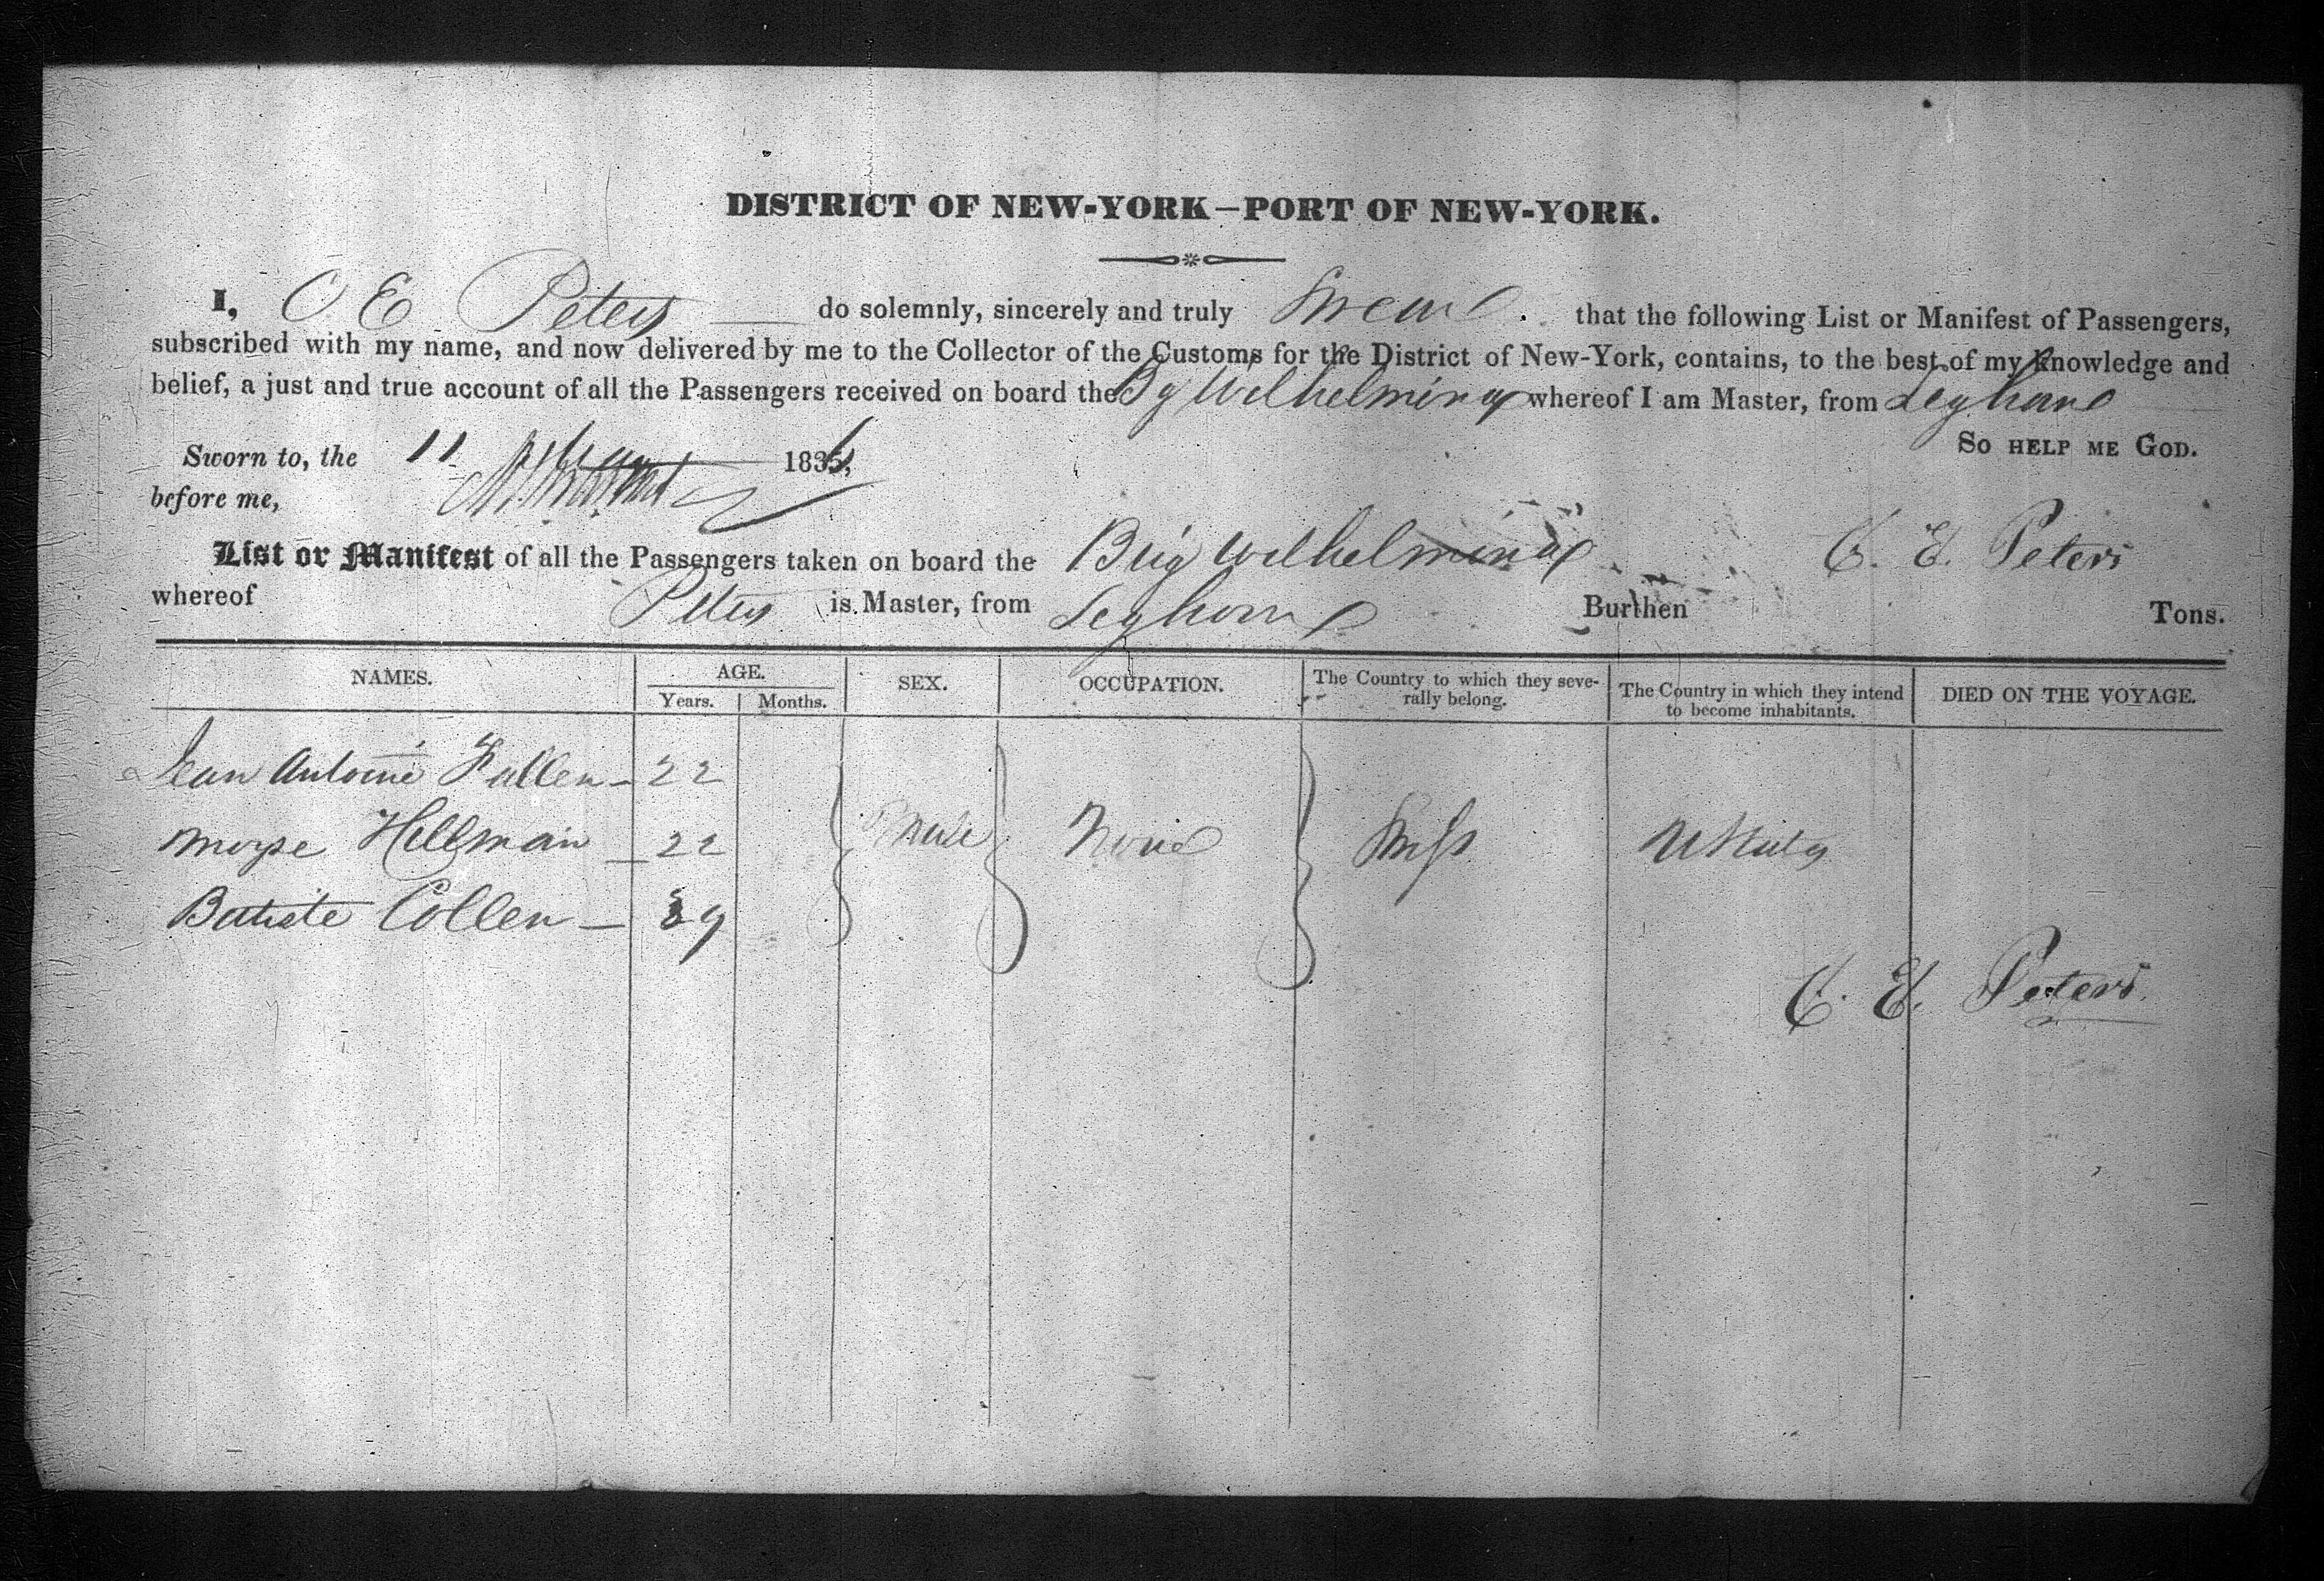 DISTRICT OF NEW-YORK—PORT OF NEW-YORK.
I, C. E. Peters do solemnly, sincerely and truly Swear. that the following List or Manifest of Passengers,
subscribed with my name, and now delivered by me to the Collector of the Customs for the District of New-York, contains, to the best of my knowledge and
belief, a just and true account of all the Passengers received on board the Bg Wilhelmina whereof I am Master, from Leghorn
So HELP ME GOD.
Sworn to, the 11 1836,
before me,
C. E. Peters
List or Manifest of all the Passengers taken on board the Brig Wilhelmina
whereof Peters is Master, from Leghorn Burthen Tons.
NAMES. AGE. SEX. OCCUPATION. The Country to which they seve- The Country in which they intend DIED ON THE VOYAGE.
Years. Months. rally belong. to become inhabitants.
Jean Antoine Fallen — 22
Moyse Hellman — 22 Male None Swiss U States
Batiste Collen — 39
C. E. Peters